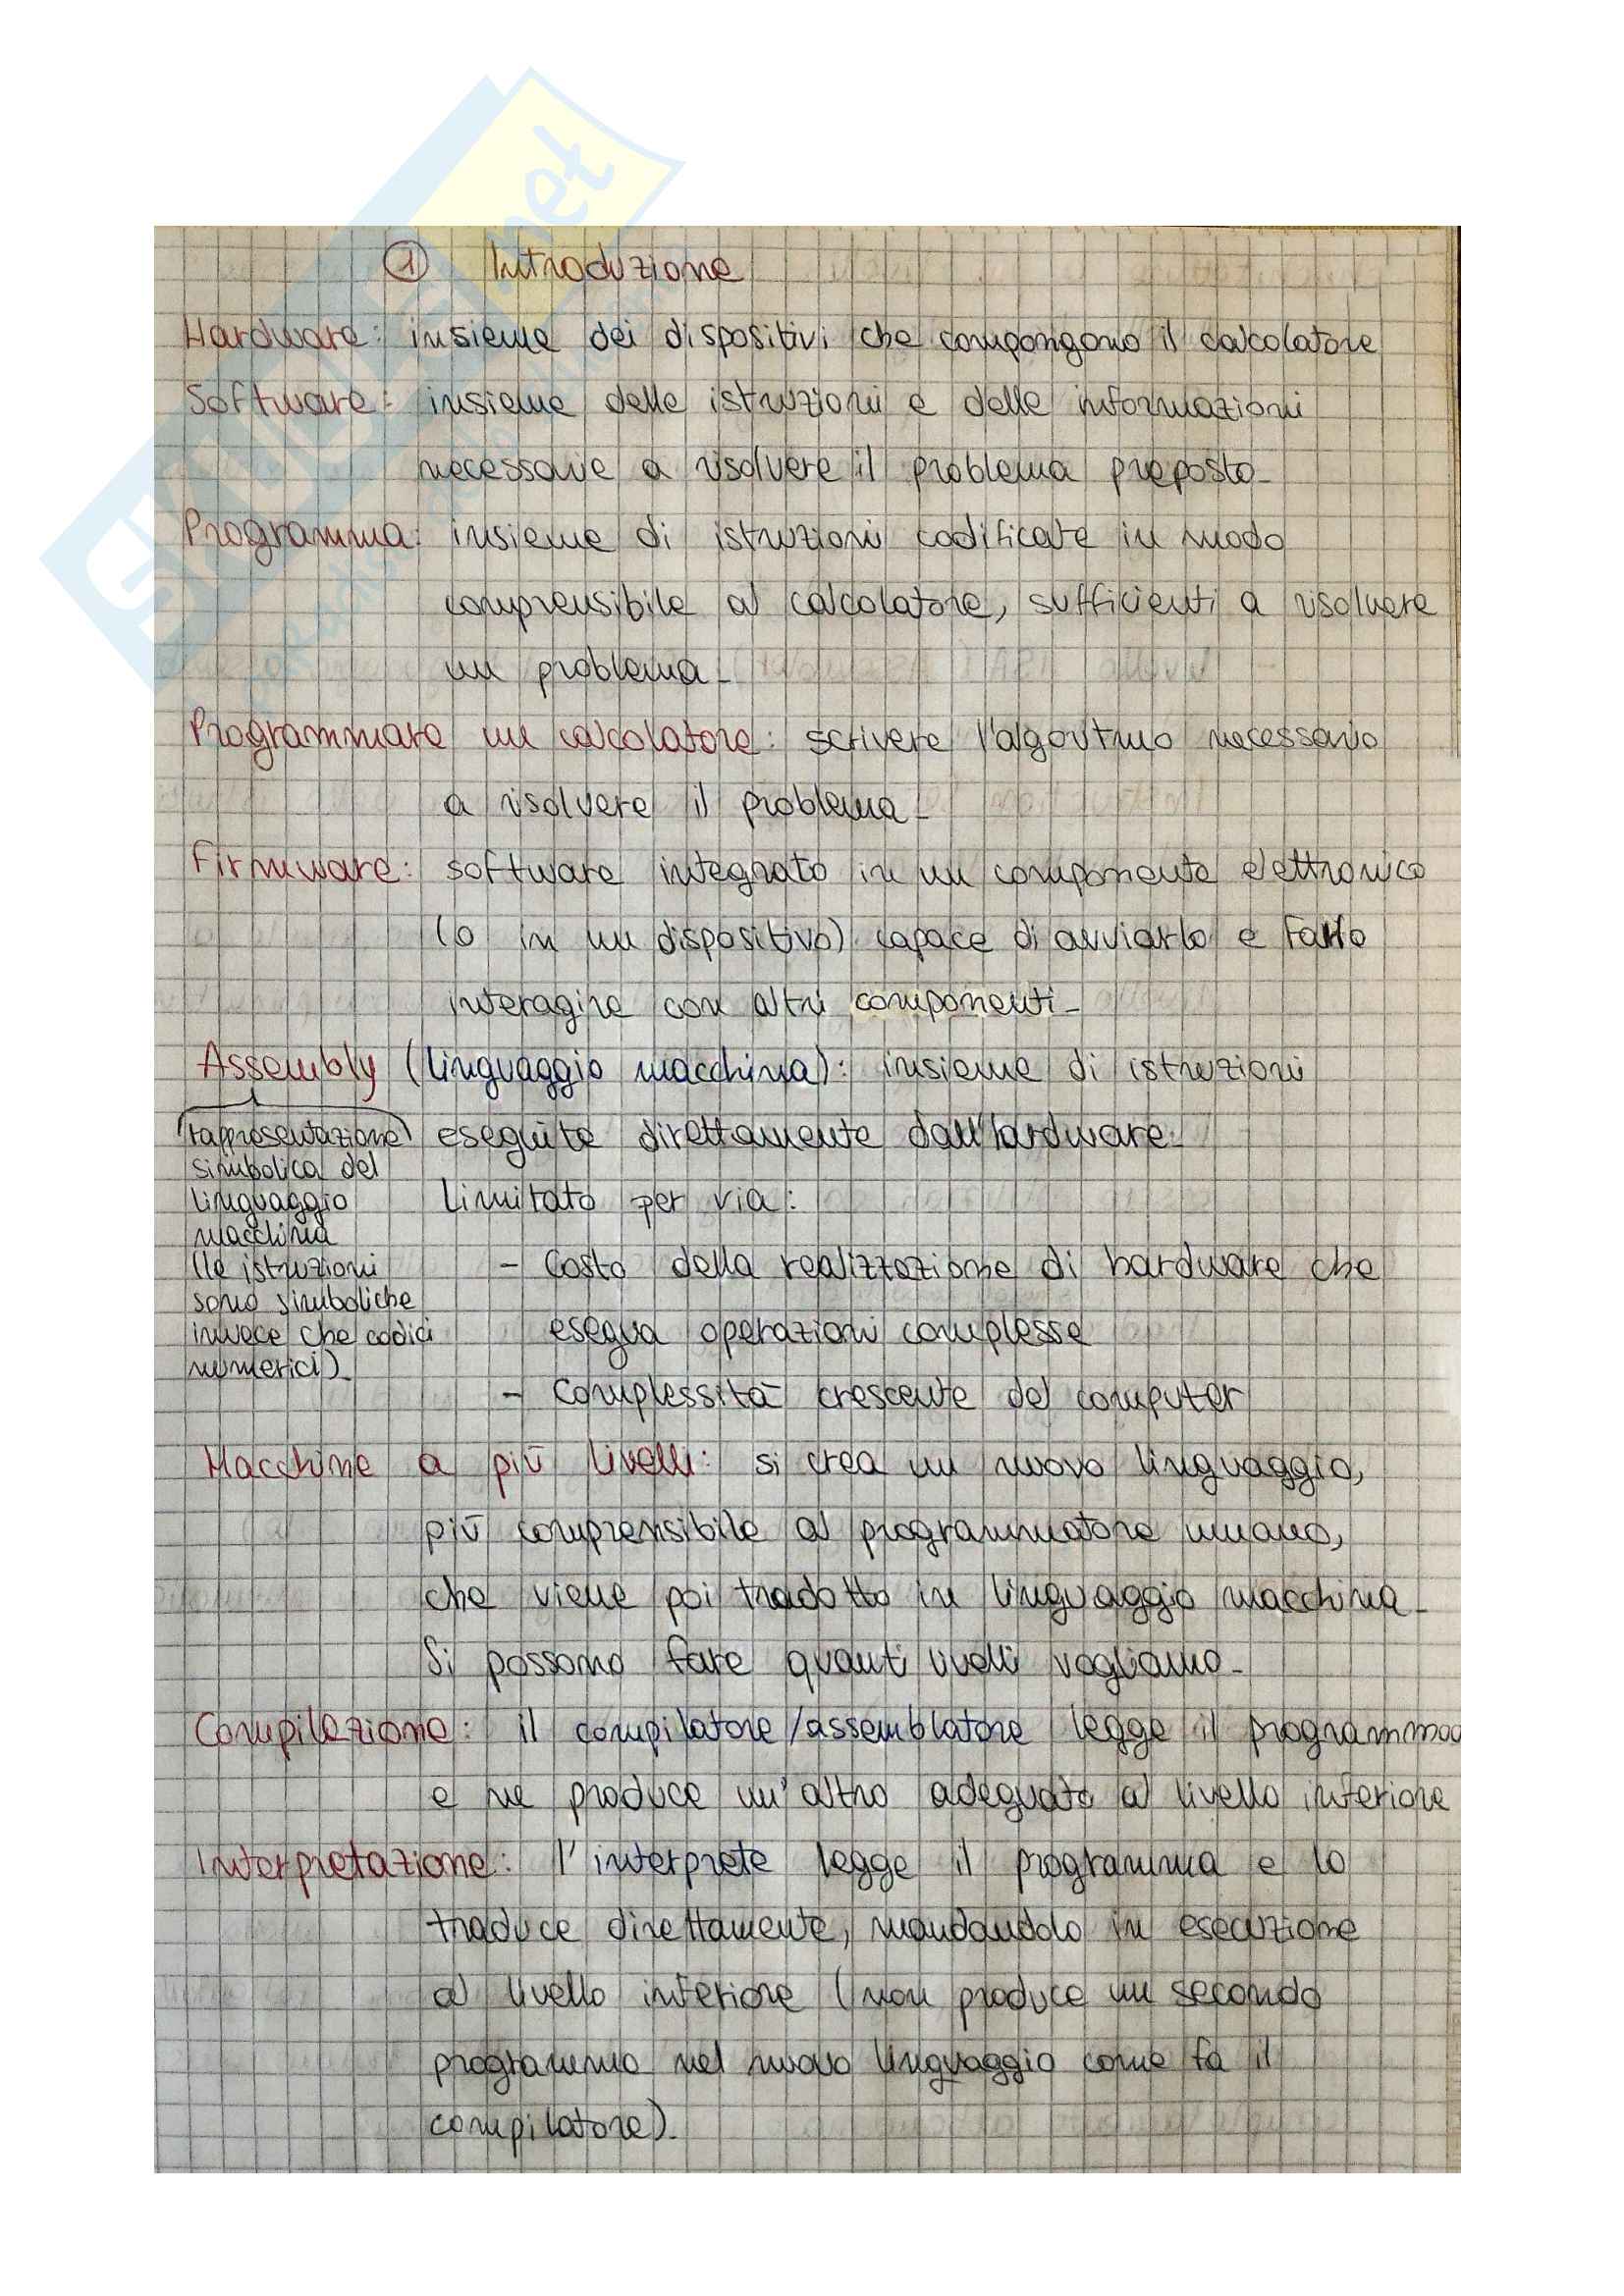 ① Introduzione
Hardware: insieme dei dispositivi che compongono il calcolatore
Software: insieme delle istruzioni e delle informazioni
necessarie a risolvere il problema proposto.
Programma: insieme di istruzioni codificate in modo
comprensibile al calcolatore, sufficienti a risolvere
un problema.
Programmare un calcolatore: scrivere l'algoritmo necessario
a risolvere il problema.
Firmware: software integrato in un componente elettronico
(o in un dispositivo) capace di avviarlo e farlo
interagire con altri componenti.
Assembly (linguaggio macchina): insieme di istruzioni
eseguite direttamente dall'hardware.
(rappresentazione
simbolica del
linguaggio
macchina
(le istruzioni
sono simboliche
invece che codici
numerici).
Limitato per via:
- Costo della realizzazione di hardware che
esegua operazioni complesse
- Complessità crescente del computer
Macchine a più livelli: si crea un nuovo linguaggio,
più comprensibile al programmatore umano,
che viene poi tradotto in linguaggio macchina.
Si possono fare quanti livelli vogliamo.
Compilazione: il compilatore/assemblatore legge il programma
e ne produce un'altro adeguato al livello inferiore
Interpretazione: l'interprete legge il programma e lo
traduce direttamente, mandandolo in esecuzione
al livello inferiore (non produce un secondo
programma nel nuovo linguaggio come fa il
compilatore).